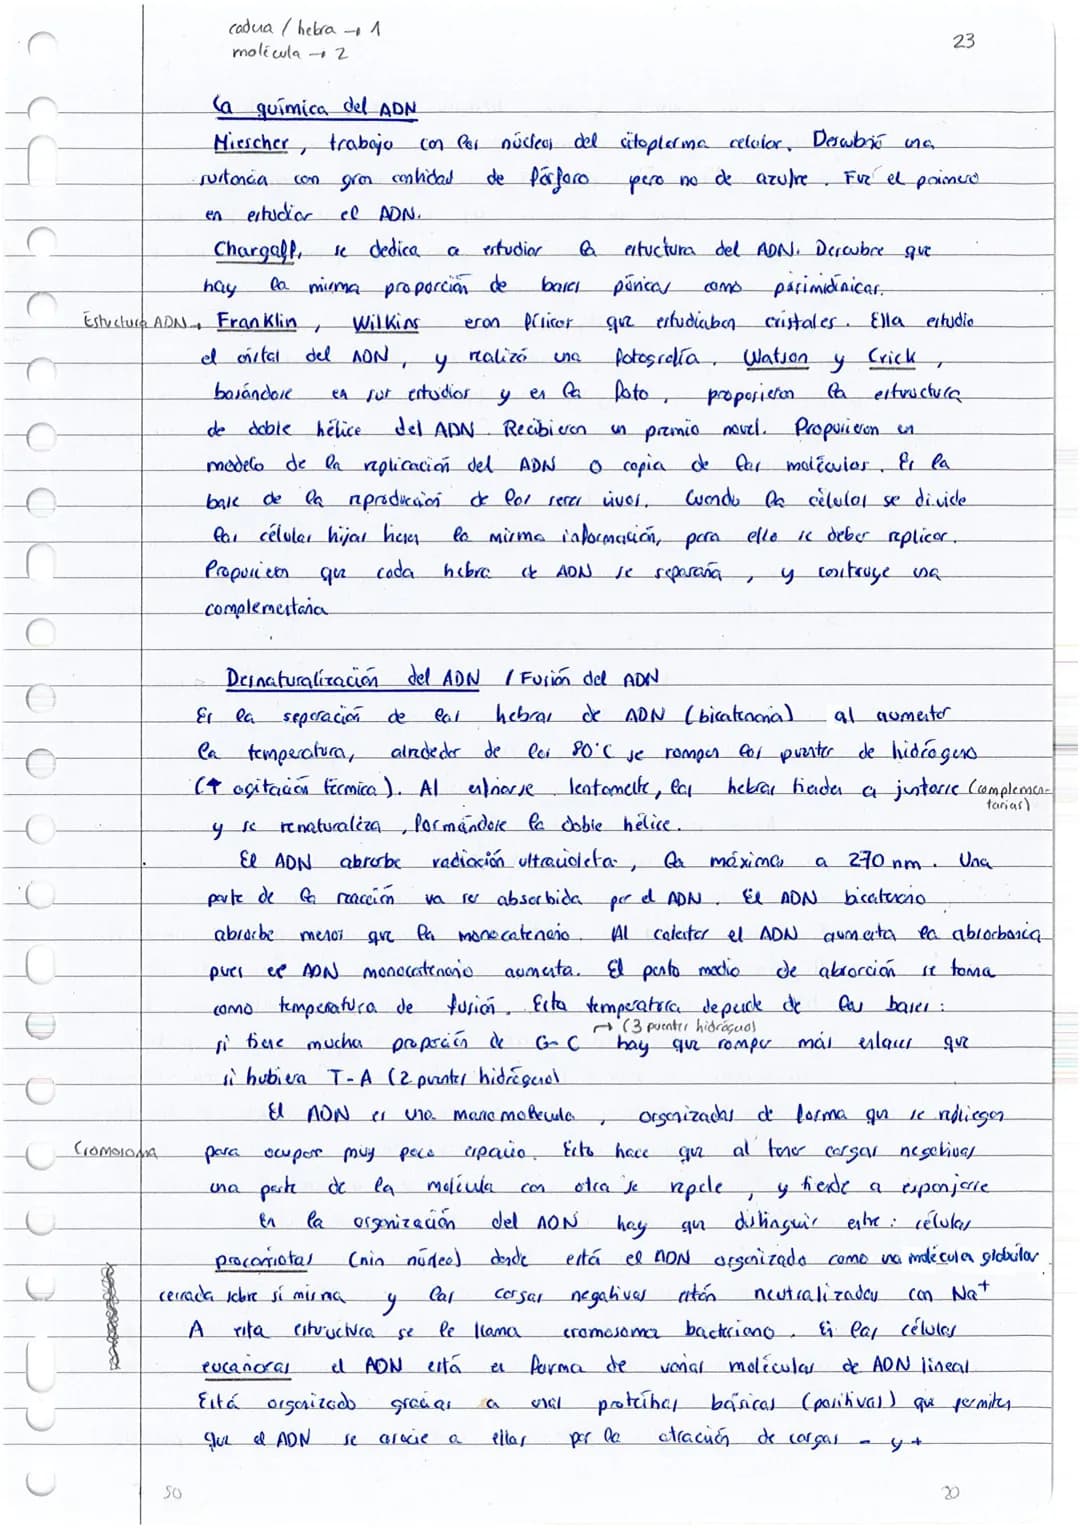 cadena / hebra → 1
molécula → 2
23
La química del ADN
Miescher, trabajo con los núcleos del citoplasma celular. Descubrió una
sustancia con gran cantidad de fósforo pero no de azufre. Fue el primero
en estudiar el ADN.
Chargaff, se dedica a estudiar la estuctura del ADN. Descubre que
hay la misma proporción de bases púricas como pirimidínicas.
Estuctura ADN → Franklin, Wilkins eran físicos que estudiaban cristales. Ella estudio
el cristal del ADN, y realizó una fotografía. Watson y Crick,
basándose en sus estudios y en la foto, propusieron la estructura
de doble hélice del ADN. Recibieron un premio novel. Propusieron un
modelo de la replicación del ADN o copia de las moléculas. Es la
base de la reproducción de los seres vivos. Cuando la células se divide
las células hijas tienen la misma información, para ello se deben replicar.
Propusieron que cada hebra de ADN se separaría, y construye una
complementaria
Desnaturalización del ADN / Fusión del ADN
Es la separación de las hebras de ADN (bicatenaria) al aumentar
la temperatura, alrededor de los 80°C se rompen los puentes de hidrógeno
(↑ agitación térmica). Al enfriarse lentamente, las hebras tienden a juntarse (complemen-
tarias)
y se renaturaliza, formándose la doble hélice.
El ADN absorbe radiación ultravioleta, la máxima a 270 nm. Una
parte de la reacción va ser absorbida por el ADN. El ADN bicatenario
absorbe menos que la monocatenario. Al calentar el ADN aumenta la absorbancia
pues el ADN monocatenario aumenta. El punto medio de absorción se toma
como temperatura de fusión. Esta temperatura depende de las bases:
→ (3 puentes hidrógeno)
si tiene mucha proporción de G-C hay que romper más enlaces que
si hubiera T-A (2 puentes hidrógeno)
El ADN es una macromolécula, organizadas de forma que se repliegan
Cromosoma para ocupar muy poco espacio. Esto hace que al tener cargas negativas
una parte de la molécula con otra se repele, y tiende a esponjarse
En la organización del ADN hay que distinguir entre: células
procariotas (sin núcleo) donde está el ADN organizado como una molécula globular
cerrada sobre sí misma y las cargas negativas están neutralizadas con Na⁺
A esta estructura se le llama cromosoma bacteriano. En las células
eucariotas el ADN está en forma de varias moléculas de ADN lineal
Está organizado gracias a unas proteínas básicas (positivas) que permiten
que el ADN se asocie a ellas por la atracción de cargas - y +
50
20